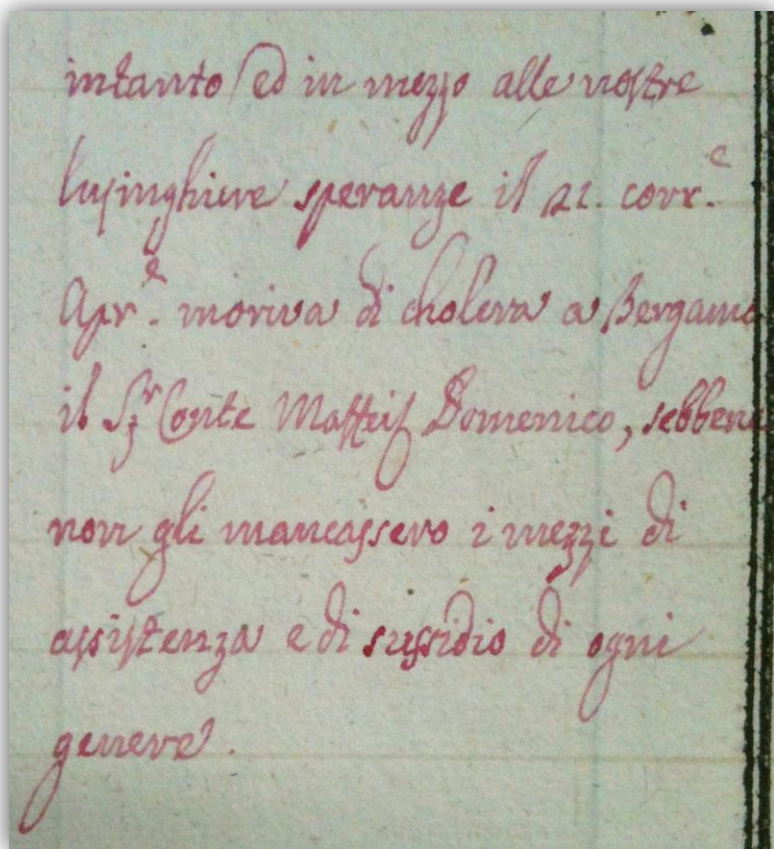 intanto ed in mezzo alle nostre
lusinghiere speranze il 21. corr.e
Apr.e moriva di cholera a Bergamo
il Sr Conte Domenico, sebbene
non gli mancassero i mezzi di
assistenza e di sussidio di ogni
genere.